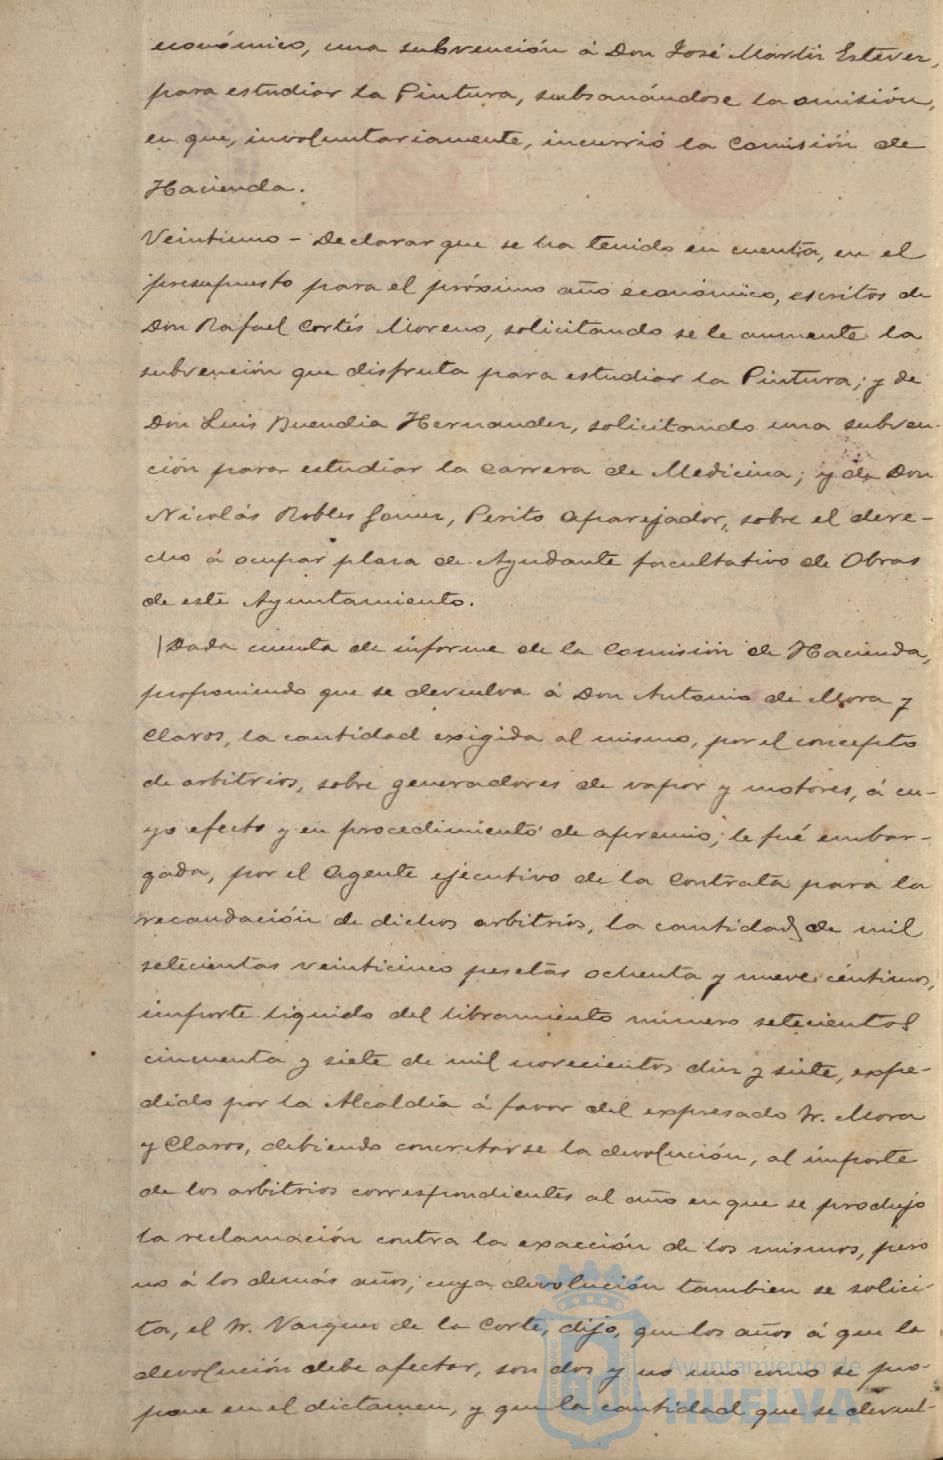 económico, una subvención á Don José Martín Estever,
para estudiar la Pintura, subsanándose la omisión,
en que, involuntariamente, incurrió la Comisión de
Hacienda.
Veintiuno - Declarar que se ha tenido en cuenta, en el
presupuesto para el próximo año económico, escritos de
Don Rafael Cortés Moreno, solicitando se le aumente la
subvención que disfruta para estudiar la Pintura; y de
Don Luis Buendia Hernander, solicitando una subven-
ción para estudiar la Carrera de Medicina; y de Don
Nicolás Robles, Perito Aparejador, sobre el dere-
cho á ocupar plaza de Ayudante facultativo de Obras
de este Ayuntamiento.
Dada cuenta de informe de la Comisión de Hacienda,
proponiendo que se devuelva á Don Antonio de Mora y
Claros, la cantidad exigida al mismo, por el concepto
de arbitrios, sobre generadores de vapor y motores, á cu-
yo efecto y en procedimiento de apremio, le fué embar-
gada, por el Agente ejecutivo de la Contrata para la
recaudación de dichos arbitrios, la cantidad de mil
setecientas veinticinco pesetas ochenta y nueve céntimos,
importe líquido del libramiento número setecientos
cincuenta y siete de mil novecientos diez y siete, expe-
dido por la Alcaldía á favor del expresado Sr. Mora
y Claros, debiendo concretarse la devolución, al importe
de los arbitrios correspondientes al año en que se produjo
la reclamación contra la exacción de los mismos, pero
no á los demás años, cuya devolución tambien se solici-
ta, el Sr. Vazquez de la Corte, dijo, que los años á que la
devolución debe afectar, son dos y no uno como se pro-
pone en el dictamen, y que la cantidad que se devuel-
Ayuntamiento de
HUELVA